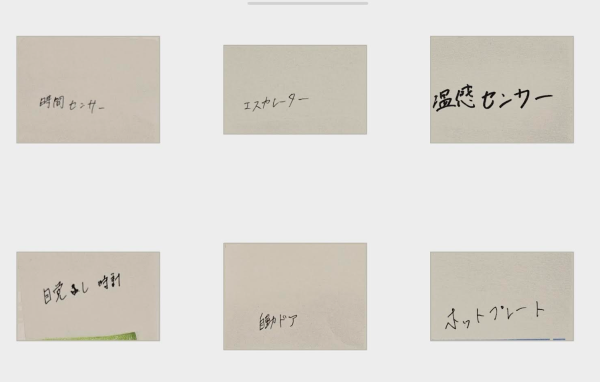 時間センサー
エスカレーター
温感センサー
目覚まし時計
自動ドア
ホットプレート